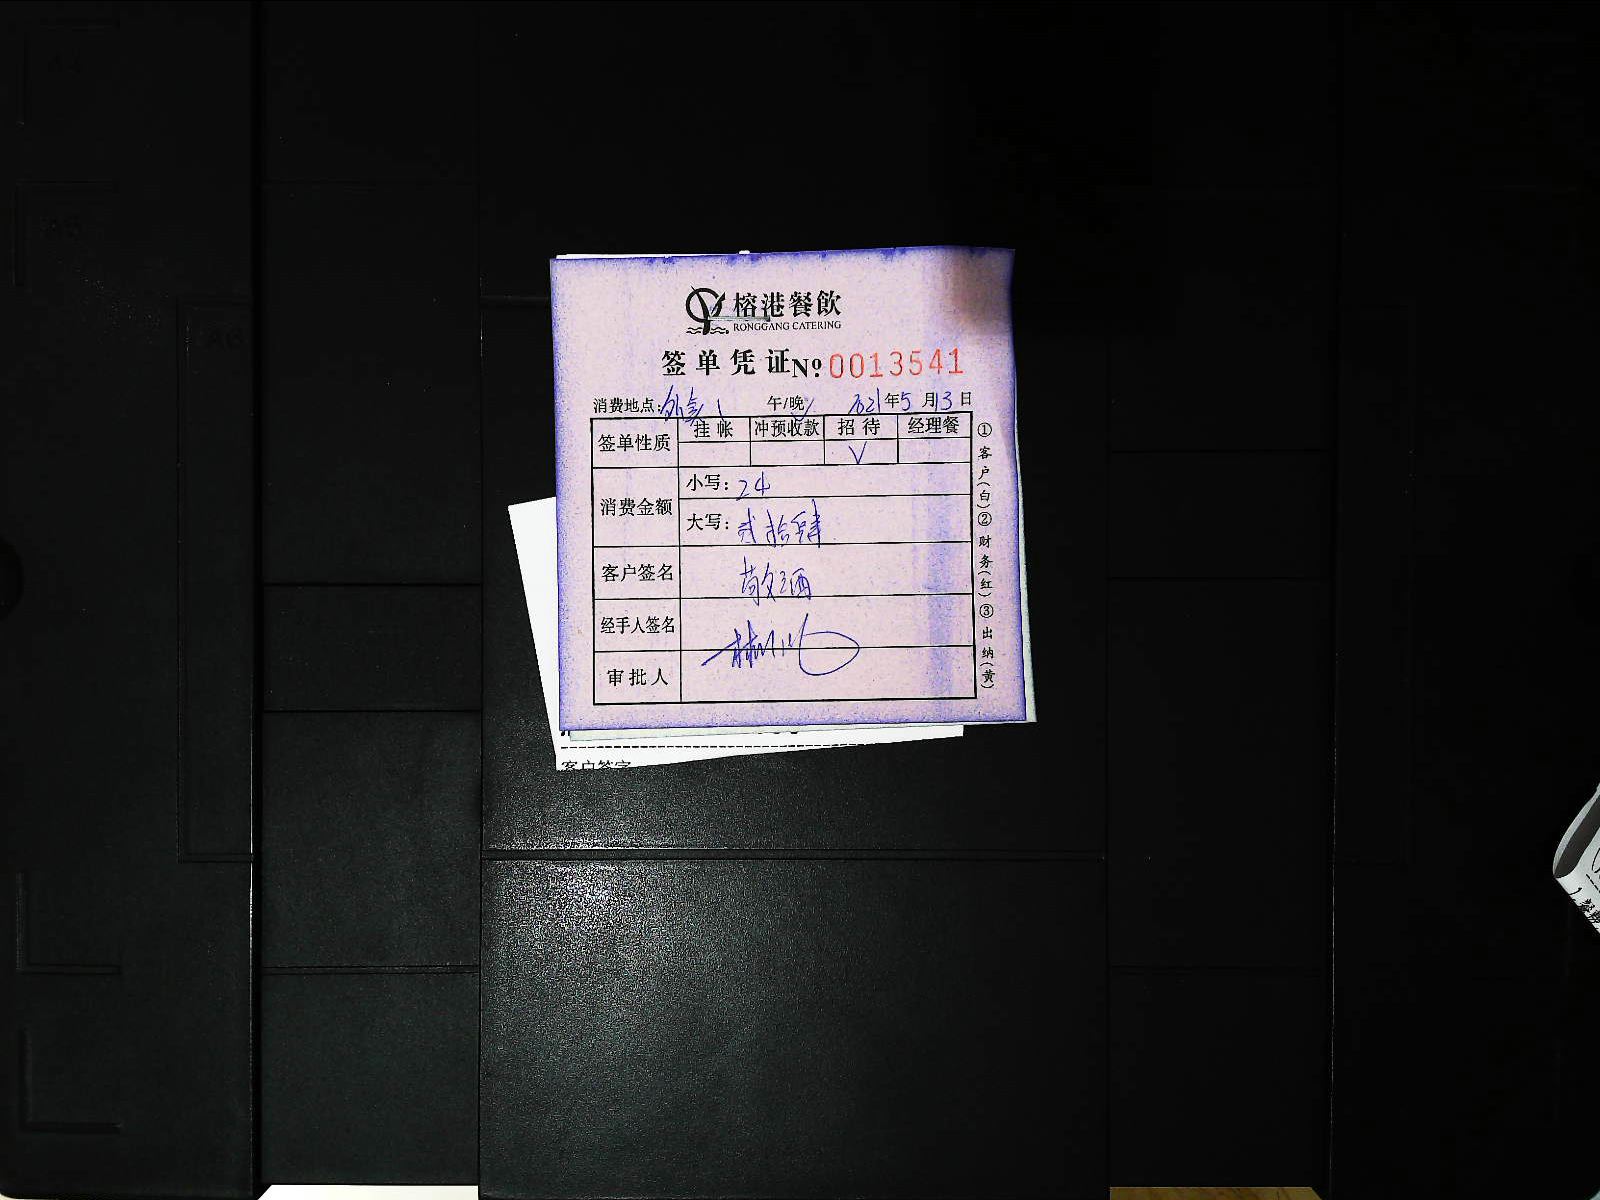 榕港餐飲
RONGGANG CATERING
签单凭证 № 0013541
消费地点: 午/晚 2021年5月13日
签单性质 挂帐 冲预收款 招待 经理餐
√
消费金额 小写: 24
大写: 贰拾肆
客户签名 敬酒
经手人签名
审批人
①客户(白)②财务(红)③出纳(黄)
客户签字